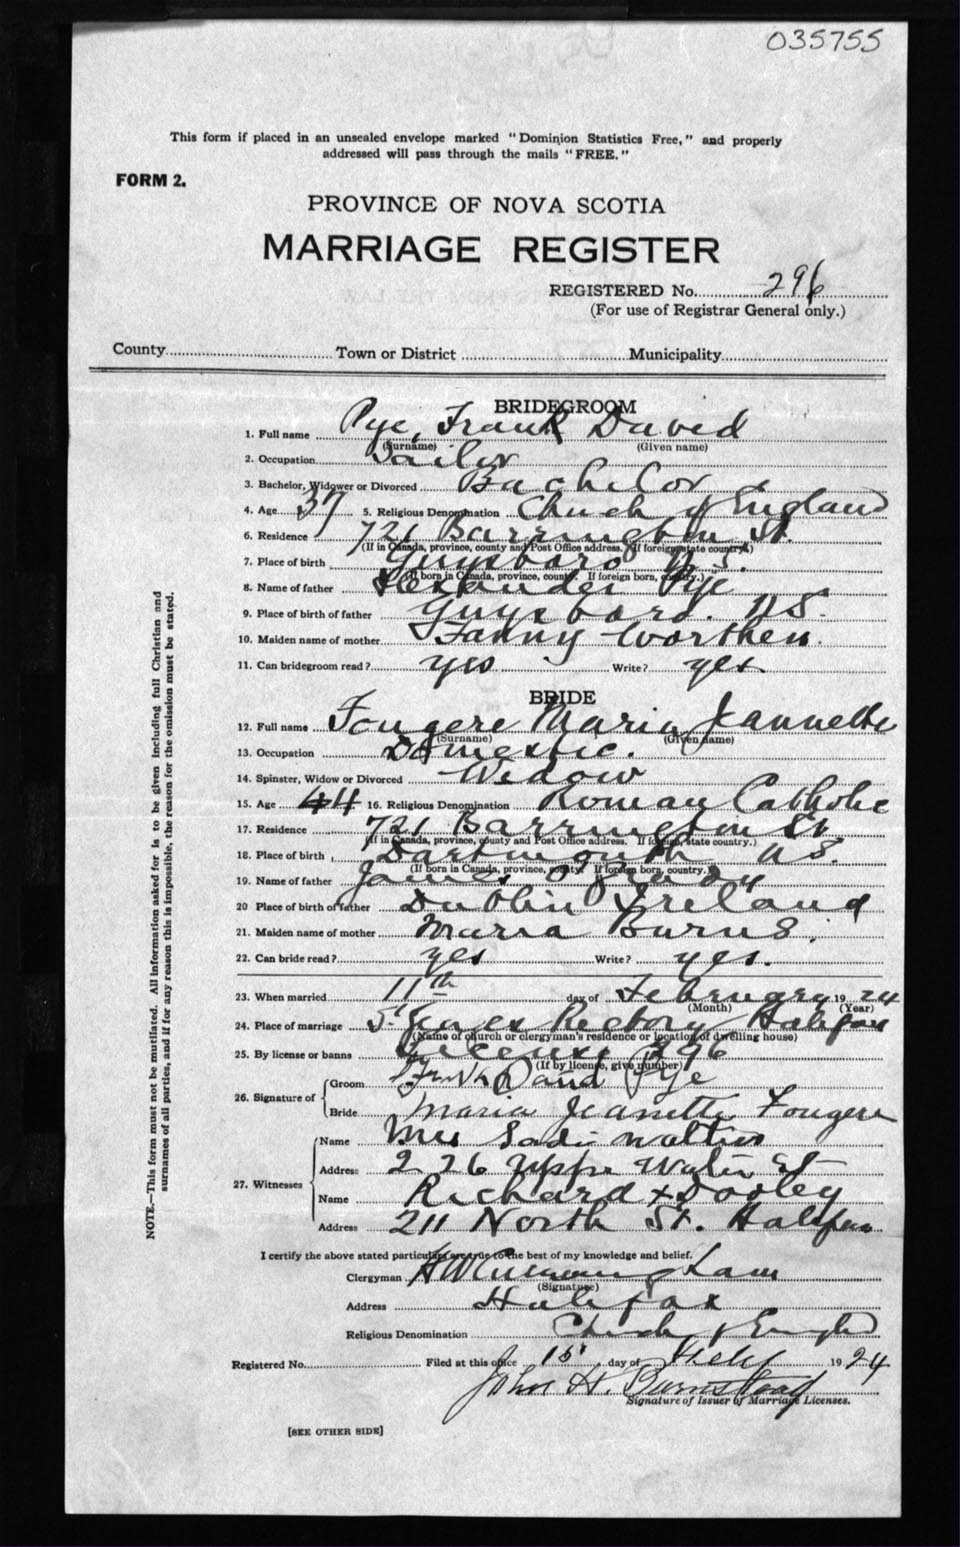 035755
This form if placed in an unsealed envelope marked "Dominion Statistics Free," and properly
addressed will pass through the mails "FREE."
FORM 2.
PROVINCE OF NOVA SCOTIA
MARRIAGE REGISTER
REGISTERED No. 296
(For use of Registrar General only.)
County Town or District Municipality
BRIDEGROOM
1. Full name Pye, Frank David
(Surname) (Given name)
2. Occupation Sailor
3. Bachelor, Widower or Divorced Bachelor
4. Age 37 5. Religious Denomination Church of England
6. Residence 721 Barrington St.
(If in Canada, province, county and Post Office address. If foreign, state country.)
7. Place of birth Guysboro N.S.
(If born in Canada, province, county. If foreign born, country.)
8. Name of father Alexander Pye
9. Place of birth of father Guysboro. N.S.
10. Maiden name of mother Fanny Worthen.
11. Can bridegroom read? yes Write? yes.
BRIDE
12. Full name Fougere Maria Jeannette
(Surname) (Given name)
13. Occupation Domestic.
14. Spinster, Widow or Divorced Widow
15. Age 44 16. Religious Denomination Roman Catholic
17. Residence 721 Barrington St
(If in Canada, province, county and Post Office address. If foreign, state country.)
18. Place of birth Dartmouth N.S.
(If born in Canada, province, county. If foreign born, country.)
19. Name of father James
20 Place of birth of father Dublin Ireland
21. Maiden name of mother Maria Burns.
22. Can bride read? yes Write? yes.
23. When married 11th day of February 1924
(Month) (Year)
24. Place of marriage Rectory Halifax
(Name of church or clergyman's residence or location of dwelling house)
25. By license or banns License 296
(If by license, give number)
26. Signature of Groom Frank David Pye
Bride Maria Jeanette Fougere
27. Witnesses Name Mrs Sadie
Address 226 Upper Water St
Name Richard Dooley
Address 211 North St. Halifax
I certify the above stated particulars are true to the best of my knowledge and belief.
Clergyman H W Cunningham
(Signature)
Address Halifax
Religious Denomination Church of England
Registered No. Filed at this office 15 day of Feby 1924
John H. Barnstead
Signature of Issuer of Marriage Licenses.
[SEE OTHER SIDE]
NOTE.—This form must not be mutilated. All information asked for is to be given including full Christian and
surnames of all parties, and if for any reason this is impossible, the reason for the omission must be stated.